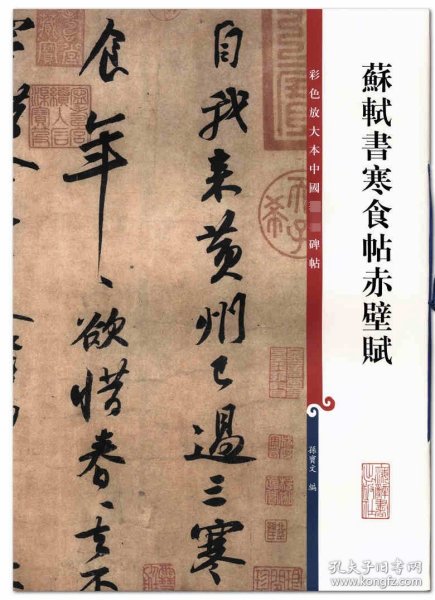 蘇軾書寒食帖赤壁賦
彩色放大本中國
碑帖
孫寶文 编
自我来黄州已過三寒
食年〻欲惜春〻去不
孔夫子旧书网
www.kongfz.com